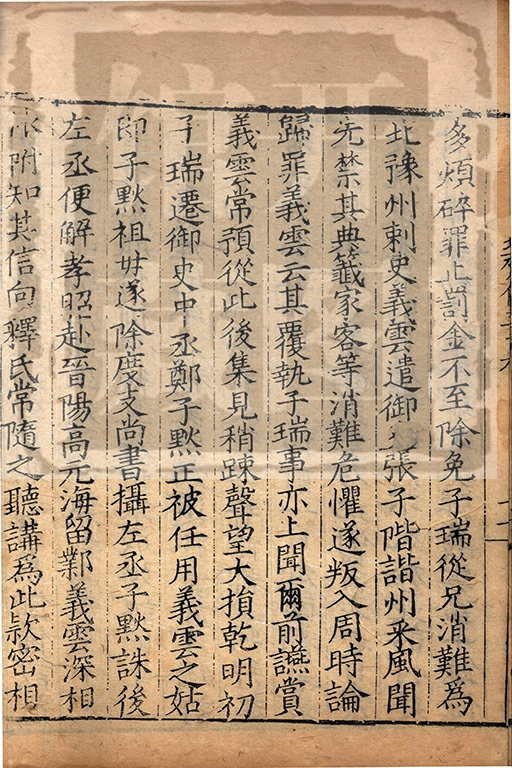 多煩碎罪止罰金不至除免子瑞從兄消難爲
北豫州刺史義雲遣御史張子階詣州采風聞
先禁其典籤家客等消難危懼遂叛入周時論
歸罪義雲云其覆執子瑞事亦上聞爾前讌賞
義雲常預從此後集見稍踈聲望大損乾明初
子瑞遷御史中丞鄭子黙正被任用義雲之姑
即子黙祖母遂除度支尚書攝左丞子黙誅後
左丞便解孝昭赴晉陽高元海留鄴義雲深相
依附知其信向釋氏常隨之聽講爲此款密相